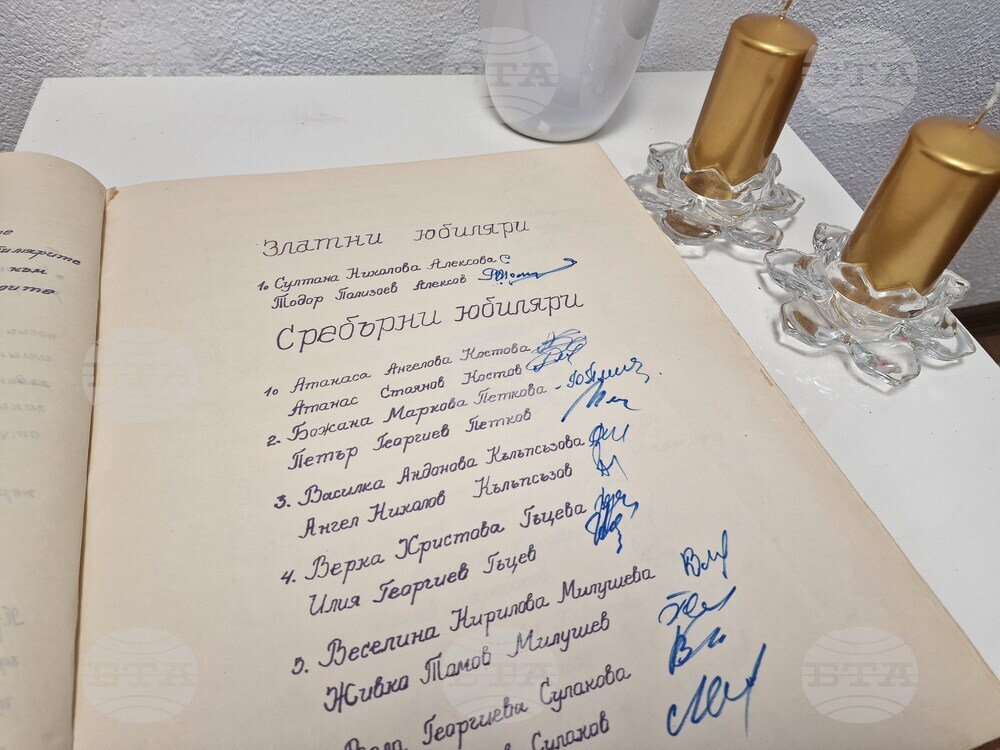 Златни юбиляри
1о Султана Николова Алексова
Тодор Пализоев Алексов
Сребърни юбиляри
1о Атанаса Ангелова Костова
Атанас Стоянов Костов
2. Божана Маркова Петкова -
Петър Георгиев Петков
3. Василка Андонова Кълъпсъзова
Ангел Николов Кълъпсъзов
4. Верка Христова Гъцева
Илия Георгиев Гъцев
5. Веселина Кирилова Милушева
Живко Томов Милушев
Георгиева Сулакова
Сулаков
БТА
БТА
БТА
БТА
БТА
БТА
БТА